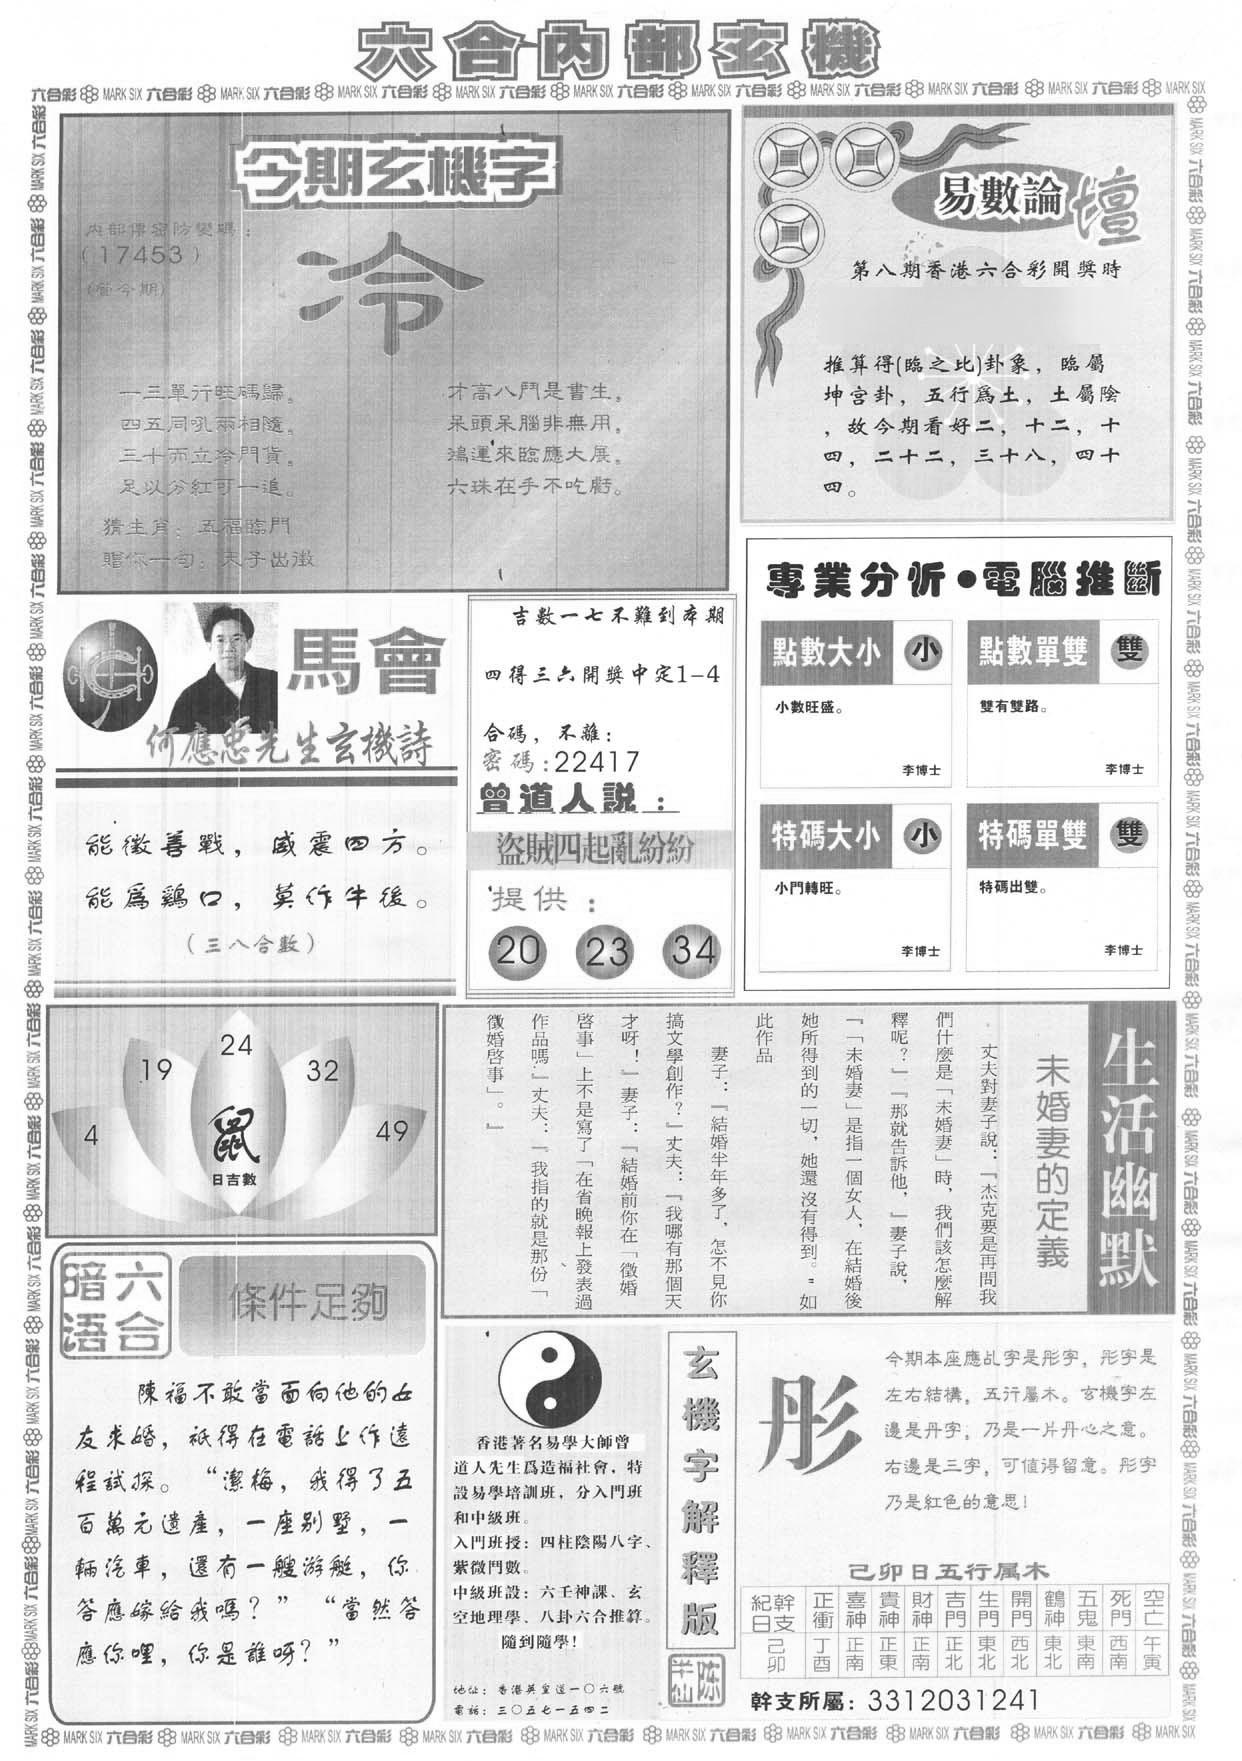 六合內部玄機
六合彩 MARK SIX 六合彩 MARK SIX 六合彩 MARK SIX 六合彩 MARK SIX 六合彩 MARK SIX 六合彩 MARK SIX 六合彩 MARK SIX 六合彩 MARK SIX 六合彩 MARK SIX 六合彩 MARK SIX
今期玄機字
內部傳密防變碼：
（17453）
(看今期)
冷
一三單行旺碼歸。
四五同吼兩相隨。
三十而立冷門貨。
足以分紅可一追。
才高八鬥是書生。
呆頭呆腦非無用。
鴻運來臨應大展。
六珠在手不吃虧。
猜生肖：五福臨門
贈你一句：天子出徵
易數論壇
第八期香港六合彩開獎時
推算得(臨之比)卦象，臨屬
坤宮卦，五行爲土，土屬陰
，故今期看好二，十二，十
四，二十二，三十八，四十
四。
馬會
何應忠先生玄機詩
能徵善戰，威震四方。
能爲鷄口，莫作牛後。
（三八合數）
吉數一七不難到本期
四得三六開獎中定1-4
合碼，不離：
密碼：22417
曾道人説：
盜賊四起亂紛紛
提供：
20 23 34
專業分析•電腦推斷
點數大小 小
小數旺盛。
李博士
點數單雙 雙
雙有雙路。
李博士
特碼大小 小
小門轉旺。
李博士
特碼單雙 雙
特碼出雙。
李博士
4 19 24 32 49
鼠
日吉數
生活幽默
未婚妻的定義
丈夫對妻子說：『杰克要是再問我
們什麼是「未婚妻」時，我們該怎麼解
釋呢？』『那就告訴他，』妻子說，
『「未婚妻」是指一個女人，在結婚後
她所得到的一切，她還沒有得到。"如
此作品
妻子：『結婚半年多了，怎不見你
搞文學創作？』丈夫：『我哪有那個天
才呀！』妻子：『結婚前你在「徵婚
啓事」上不是寫了「在省晚報上發表過
作品嗎？』丈夫：『我指的就是那份「
徵婚啓事」。』
六合暗语
條件足夠
陳福不敢當面向他的女
友求婚，祇得在電話上作遠
程試探。“潔梅，我得了五
百萬元遺產，一座别墅，一
輛汽車，還有一艘游艇，你
答應嫁給我嗎？”“當然答
應你哩，你是誰呀？”
香港著名易學大師曾
道人先生爲造福社會，特
設易學培訓班，分入門班
和中級班。
入門班授：四柱陰陽八字、
紫微鬥數。
中級班設：六壬神課、玄
空地理學、八卦六合推算。
隨到隨學！
地址：香港英皇道一〇六號
電話：三〇五七一五四二
玄機字解釋版
陈半仙
彤
今期本座應乩字是彤字，彤字是
左右結構，五行屬木。玄機字左
邊是丹字，乃是一片丹心之意。
右邊是三字，可值得留意。彤字
乃是紅色的意思！
己卯日五行属木
紀日 幹支 正衝 喜神 貴神 財神 吉門 生門 開門 鶴神 五鬼 死門 空亡
己卯 丁酉 正南 正東 正南 正北 東北 西北 東北 東南 西南 午寅
幹支所屬：3312031241
六合彩 MARK SIX 六合彩 MARK SIX 六合彩 MARK SIX 六合彩 MARK SIX 六合彩 MARK SIX 六合彩 MARK SIX 六合彩 MARK SIX 六合彩 MARK SIX 六合彩 MARK SIX